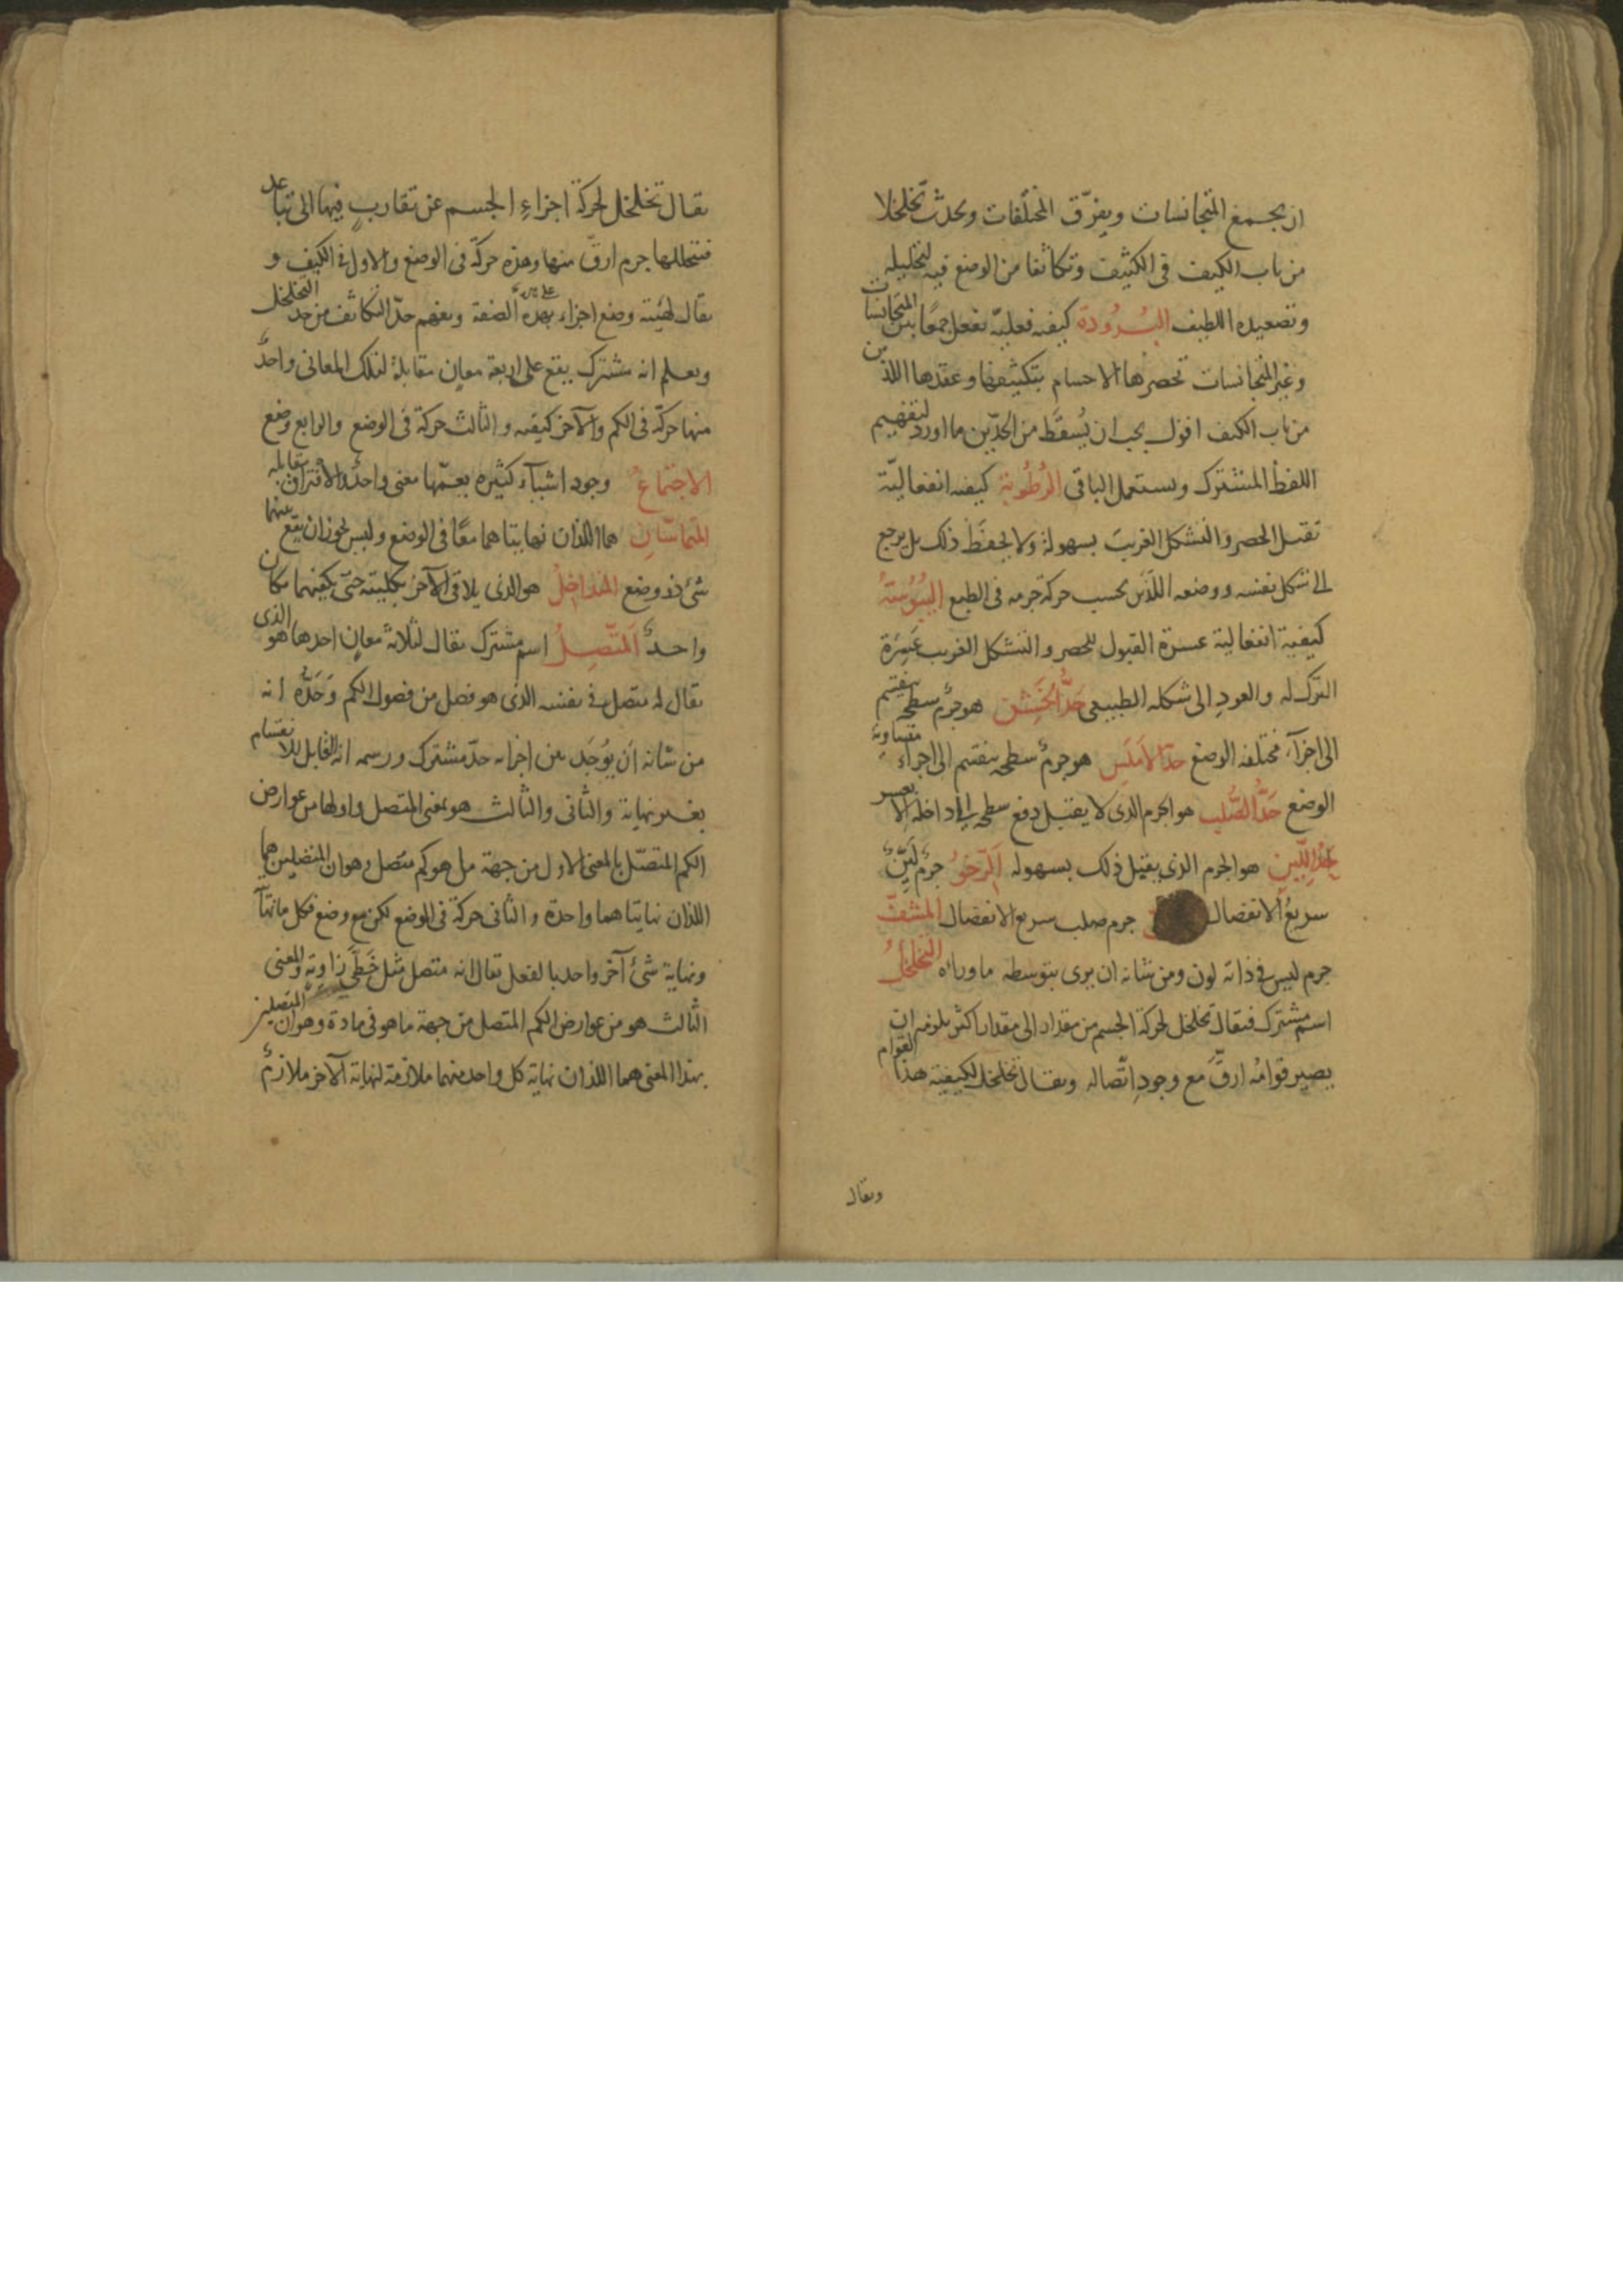 ان يجمع المتجانسات ويفرّق المختلفات ويحدث تخلخلا
من باب الكيف فى الكثيف وتكاثفا من الوضع فيه لتحليله
وتصعيده اللطيف البُرُودة كيفيه فعليّه تفعل جمعًا بين المتجانسات
وغير المتجانسات تحصرها الاجسام بتكثيفها وعقدها اللذين
من باب الكيف اقول يجب ان يُسقَط من الحدّين ما اورد لتفهيم
اللفظ المشترك ويستعمل الباقى الرُطُوبة كيفيه انفعاليّة
تقبل الحصر والتشكل الغريبَ بسهولة ولا يحفظ ذلك بل يرجع
الى شكل نفسه ووضعه اللذين بحسب حركة جرمه فى الطبع اليُبُوسَةُ
كيفية انفعالية عسرة القبول للحصر والتشكل الغريب عَسِرَة
الترك له والعودِ الى شكله الطبيعى حَدُّ الخَشِن هو جرم سطحه ينقسم
الى اجزآء مختلفه الوضع حدّ الاَملَسِ هو جرمٌ سطحه ينقسم الى اجزاء متساوية
الوضع حَدُّ الصُّلبِ هو الجرم الذى لا يقبل دفع سطحه الى داخله الا بعسر
حَدُّ اللّيّنِ هو الجرم الذى يقبل ذلك بسهوله اَلرّخوُ جرمٌ لَيِّنٌ
سريعُ الانفصال جرم صلب سريع الانفصال المشفّ
جرم ليس فى ذاته لون ومن شانه ان يرى بتوسطه ماوراءه التخلخلُ
اسم مشترك فيقال تخلخل لحركة الجسم من مقدار الى مقدار اكثر يلزمه ان
يصير قوامُه ارقَّ مع وجودِ اتّصاله ويقال تخلخل لكيفية هذا القوام
ويقال
يقال تخلخل لحركة اجزاءِ الجسم عن تقاربٍ فيها الى تباعد
فيتخللها جرم ارقّ منها وهذه حركة فى الوضع والاول فى الكيف و
يقال لهيئة وضع اجزاء على هذه الصفة ويفهم حدّ التكاثف من حد التخلخل
ويعلم انه مشترك يقع على اربعة معانٍ مقابلة لتلك المعانى واحدٌ
منها حركة فى الكم والآخر كيفيه والثالث حركة فى الوضع والرابع وضع
الاجتماعُ وجود اشيآء كثيره يعمّها معنى واحدٌ والافتراق يقابله
المتماسّانِ هما اللذان نهايتاهما معًا فى الوضع وليس يجوز ان يقع بينهما
شئ ذو وضع المتداخِلُ هو الذى يلاقى الآخر بكليته حتى يكفيهما مكان
واحدٌ اَلمتّصِلُ اسم مشترك يقال لثلاثة معانٍ احدها هو الذى
يقال له متصل فى نفسه الذى هو فصل من فصول الكم وَحَدُّه انه
من شانه اَن يُوجَد بين اجزائه حدّ مشترك ورسمه انه القابل للانقسام
بغير نهاية والثانى والثالث هو بمعنى المتصل واولها من عوارض
الكم المتصّل بالمعنى الاول من جهة ما هو كم متصل وهو ان المتصلين هما
اللذان نهايتاهما واحدة والثانى حركة فى الوضع لكن مع وضع فكل ما نهايته
ونهاية شئ آخر واحد بالفعل يقال انه متصل مثل خَطَّى زاوية والمعنى
الثالث هو من عوارض الكم المتصل من جهة ما هو فى مادة وهو ان المتصلين
بهذا المعنى هما اللذان نهاية كل واحد منهما ملازمة لنهاية الآخر ملازمٌ